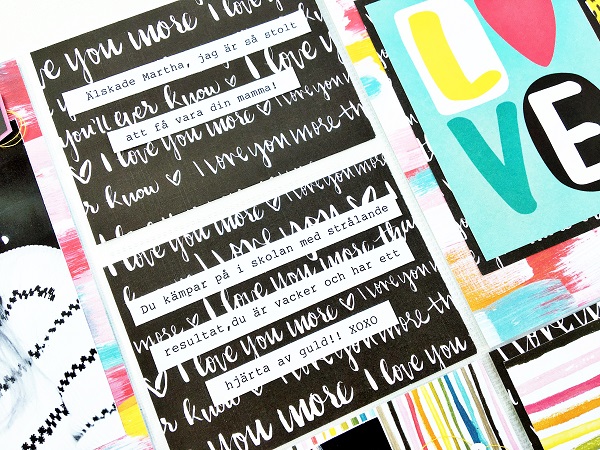 e you more I love you
Älskade Martha, jag är så stolt
you'll ever know I love
att få vara din mamma!
I love you more I love you more the
er know I love you more
I love you more I love you
Du kämpar på i skolan med strålande
resultat,du är vacker och har ett
more I love you more I love you more th
hjärta av guld!! XOXO
er know I love you
you more I love you
LOVE